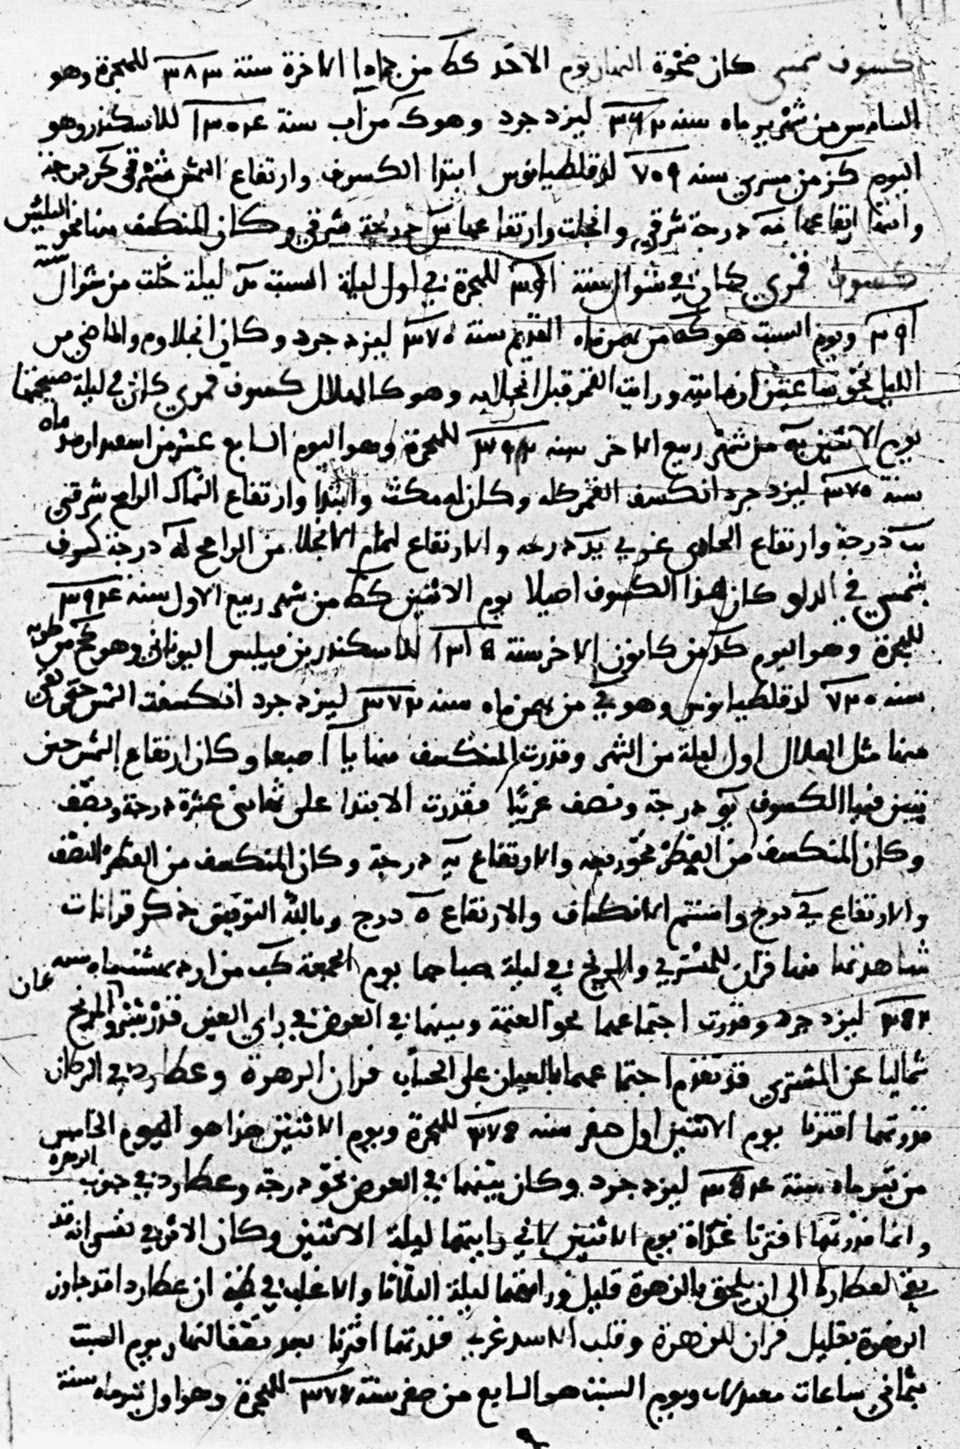 كسوف شمسي كان ضحوة النهار يوم الاحد كط من جمادا الاخرة سنة ٣٨٣ للهجرة وهو
السادس من شهريرماه سنه ٣٦٢ ليزدجرد وهو ك من آب سنة ١٣٠٤ للاسكندر وهو
اليوم كز من مسرى سنه ٧٠٩ لدقلطيانوس ابتدا الكسوف وارتفاع الشمس شرقي كز درجة
وانتها ارتفاعها مه درجة شرقي وانجلت وارتفاعها س درجة شرقي وكان المنكسف منها نحو الثلثين
كسوف قمري كان في شوال سنة للهجرة في اول ليلة السبت ليلة خلت من شوال سنة
ويوم السبت هو كه من بهمن ماه القديم سنة ٣٧٠ ليزدجرد وكان انجلاوه والماضي من
الليل نحو ساعتين زمانيه ورايت القمر قبل انجلايه وهو كالهلال كسوف قمري كان في ليلة صبيحتها
يوم الاثنين يه من شهر ربيع الاخر سنه ٣٩٢ للهجرة وهو اليوم السابع عشر من اسفندارمذ ماه
سنة ٣٧٠ ليزدجرد انكسف القمر كله وكان له مكث وابتدا وارتفاع السماك الرامح شرقي
درجة وارتفاع الحادي غربي يد درجه والارتفاع لتمام الانجلا من الرامح له درجة كسوف
شمسي في الدلو كان هذا الكسوف اصيلا يوم الاثنين كط من شهر ربيع الاول سنة ٣٩٤
للهجرة وهو اليوم كد من كانون الاخر سنة للاسكندر بن فيلبس اليوناني وهو كح من طوبه
سنه ٧٢٠ لدقلطيانوس وهو ي من بهمن ماه سنه ٣٧٢ ليزدجرد انكسفت الشمس حتى بقي
منها مثل الهلال اول ليلة من الشهر وقدرت المنكسف منها يا اصبعا وكان ارتفاع الشمس حين
تبين فيها الكسوف درجة ونصف غربيا فقدرت الابتدا على ثماني عشرة درجة ونصف
وكان المنكسف من القطر نحو ربعه والارتفاع يه درجة وكان المنكسف من القطر النصف
والارتفاع ي درج واستتم الانكساف والارتفاع ه درج وبالله التوفيق ذكر قرانات
شاهدتها منها قران للمشتري والمريخ في ليلة صباحها يوم الجمعة كب من ارديبهشت ماه سنه
ليزدجرد وقدرت اجتماعهما نحو العتمة وبينهما في العرض في راي العين قدر شبر والمريخ
شماليا عن المشتري قد تقدم اجتماعهما بالعيان على الحساب قران الزهرة وعطارد في السرطان
قدرتهما اقترنا يوم الاثنين اول صفر سنه للهجرة ويوم الاثنين هذا هو اليوم الخامس
من تير ماه سنة ليزدجرد وكان بينهما في العرض نحو درجة وعطارد في جنوب الزهره
وانما قدرتهما اقترنا غداة يوم الاثنين لاني رايتهما ليلة الاثنين وكان الاثر في نفسي انه قد
بقي لعطارد الى ان يلحق بالزهرة قليل ورايتهما ليلة الثلاثا والاغلب في ظني ان عطارد اقد جاوز
الزهرة بقليل قران للزهرة وقلب الاسد غرب قدرتهما اقترنا بعد نصف النهار يوم السبت
بثماني ساعات معتدلات ويوم السبت هو السابع من صفر سنة ٣٧٧ للهجرة وهو اول تيرماه سنة